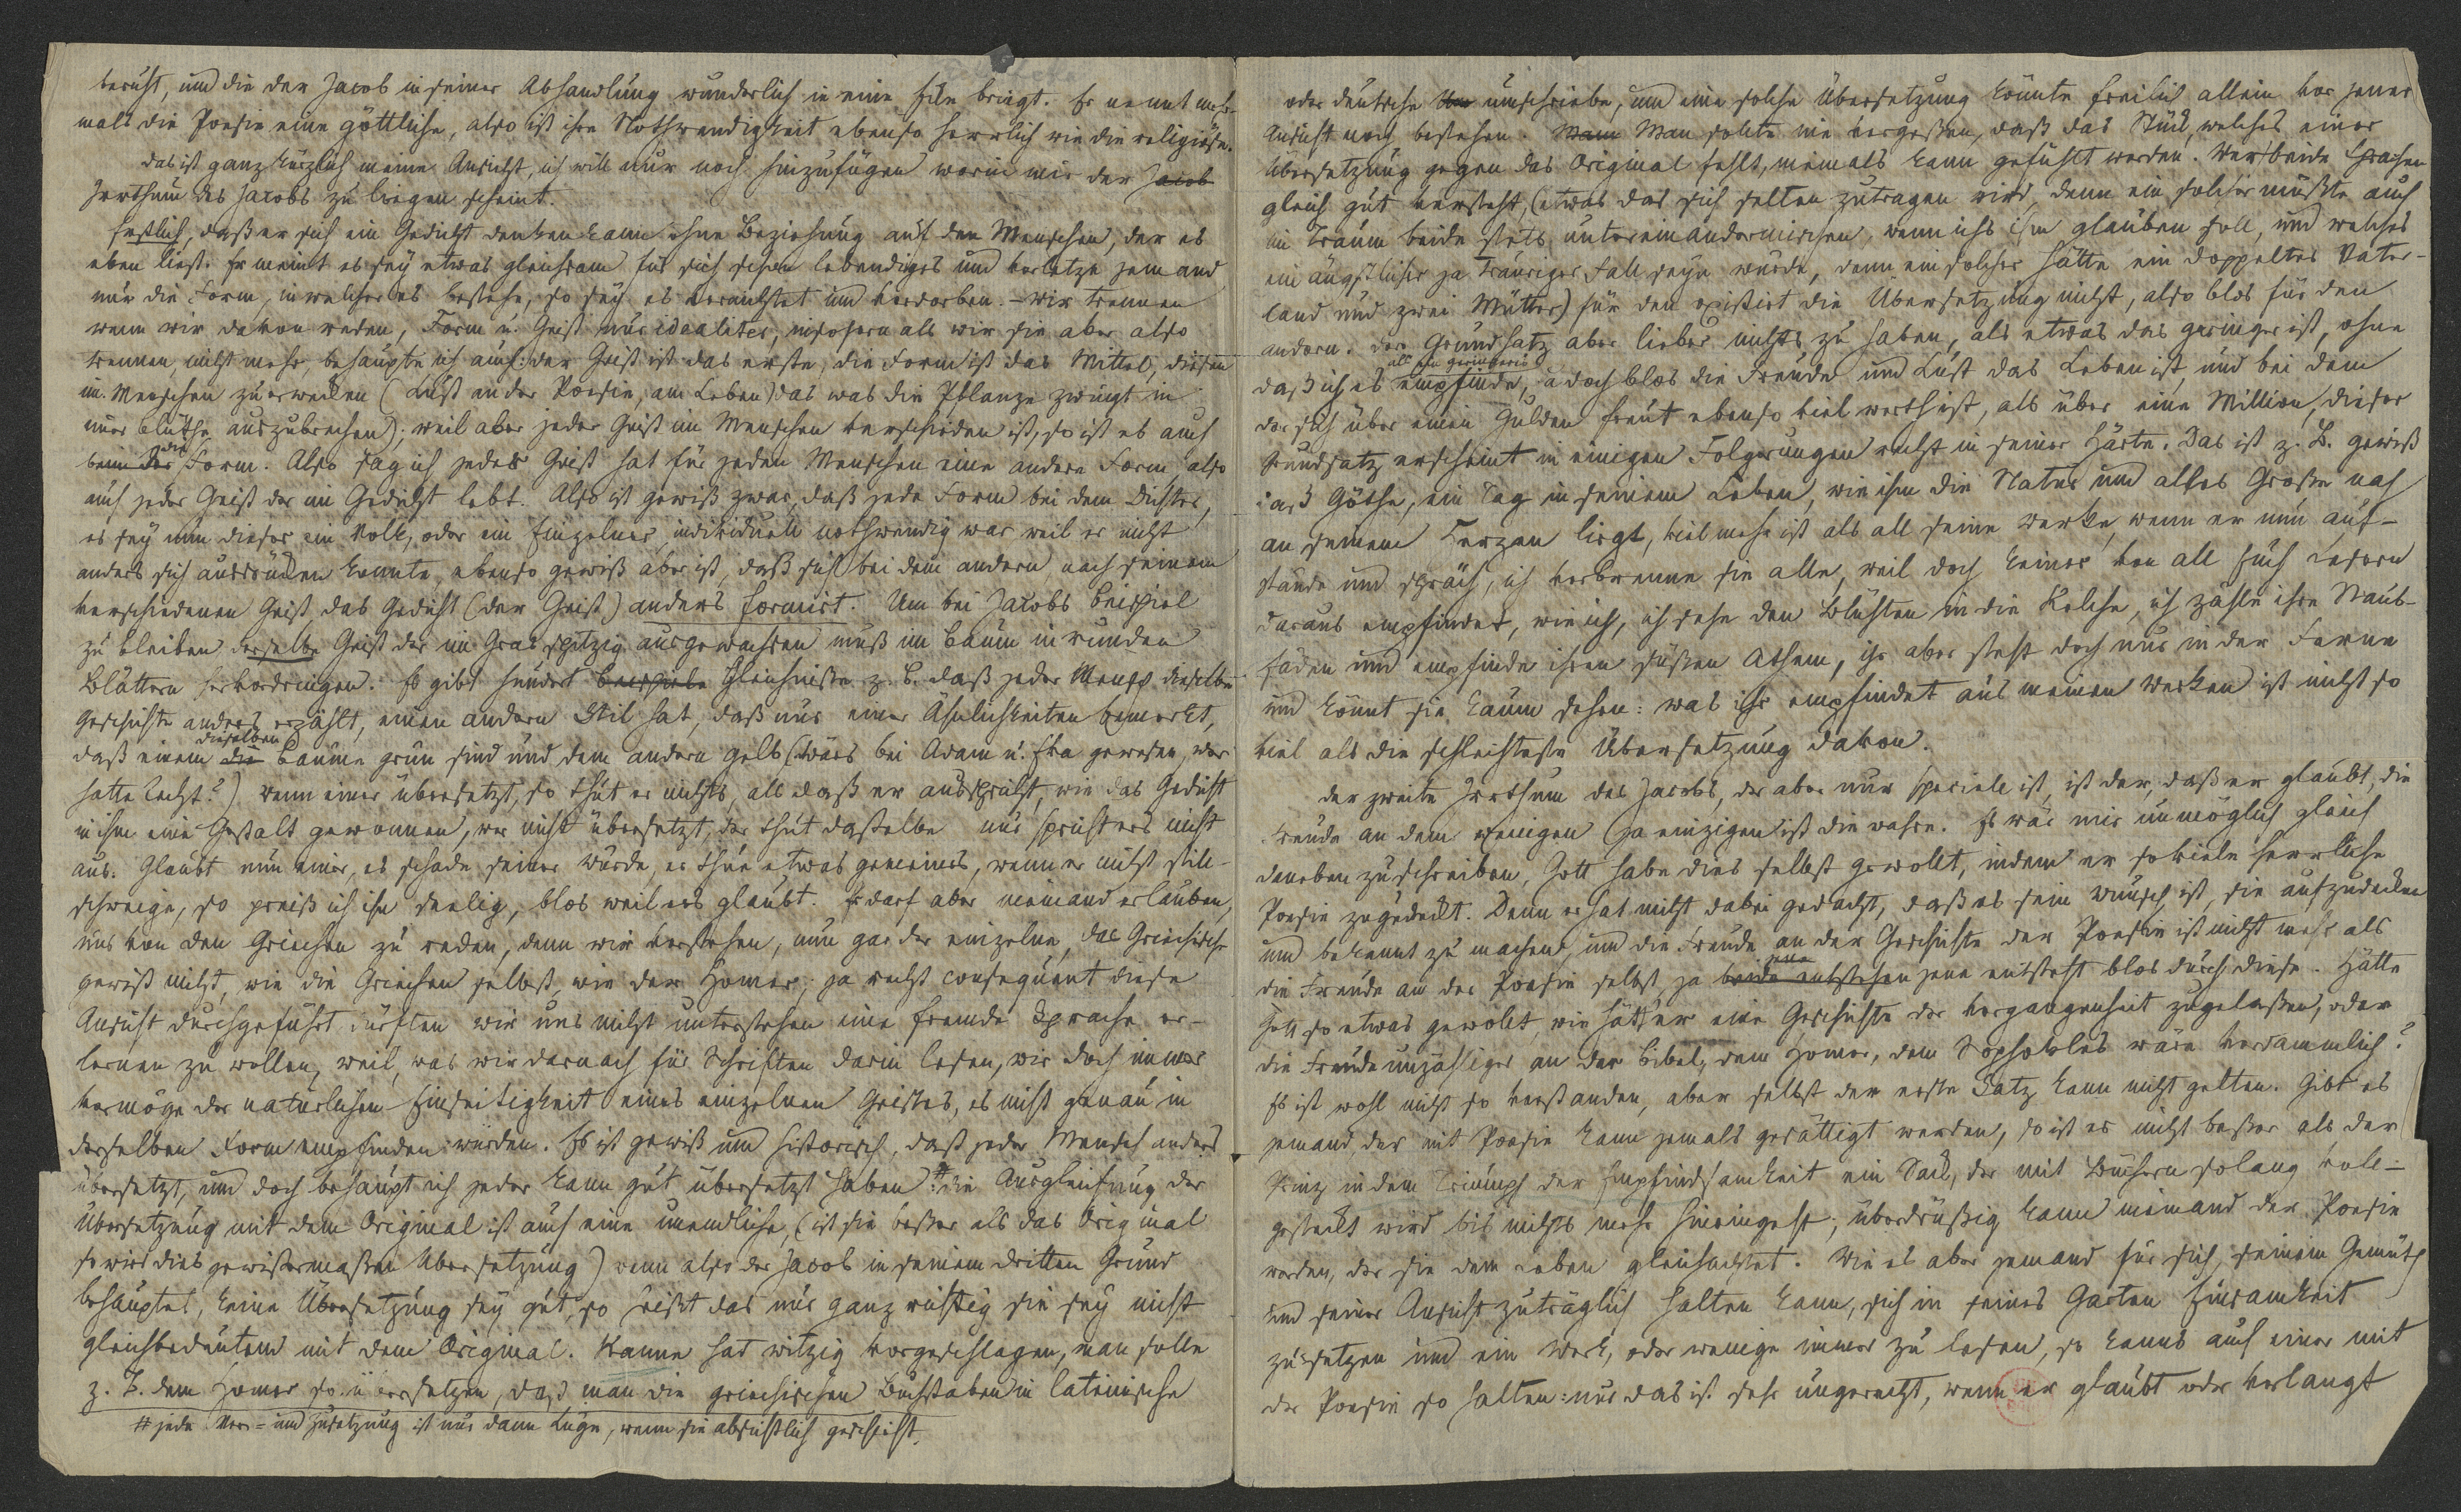 beruht, und die der Jacob in seiner Abhandlung wunderlich in eine bringt. Er nennt mehr-
mals die Poesie eine göttliche, also ist ihre Nothwendigkeit ebenso herrlich wie die religiöse.
das ist ganz kürzlich meine Ansicht, ich will nur noch hinzufügen worin mir der Jacob
Irrthum des Jacobs zu liegen scheint.
Erstlich, daß er sich ein Gedicht denken kann ohne Beziehung auf den Menschen, der es
eben liest. Er meint es sey etwas gleichsam für sich schon lebendiges und verletze jemand
nur die Form, in welcher es bestehe, so sey es vernichtet und verdorben. – wir trennen
wenn wir davon reden, Form u. Geist nur idealiter, insofern als wir sie aber also
trennen, nicht mehr, behaupte ich auch: der Geist ist das erste, die Form ist das Mittel, diesen
im Menschen zu erwecken (Lust an der Poesie, am Leben) das was die Pflanze zwingt in
eine Blüthe auszubrechen); weil aber jeder Geist im Menschen verschieden ist, so ist es auch
beim der die Form. Also sag ich jeder Geist hat für jeden Menschen eine andere Form, also
auch jeder Geist der im Gedicht lebt. Also ist gewiß zwar, daß jede Form bei dem Dichter,
es sey nun dieser ein Volk, oder ein Einzelner, individuell nothwendig war weil er nicht
anders sich ausdrücken konnte, ebenso gewiß aber ist, daß sich bei dem andern nach seinem
verschiedenen Geist das Gedicht (der Geist) anders formirt. Um bei Jacobs Beispiel
zu bleiben derselbe Geist der im Gras spitzig ausgewachsen muß im Baum in runden
Blättern hervordringen. Es gibt hundert Beispiele Gleichniße z. B. daß jeder Mensch dieselbe
Geschichte anders erzählt, einen andern Stil hat, daß nur einer Ähnlichkeiten bemerkt,
daß einem die dieselben Bäume grün sind und dem andern gelb (wärs bei Adam u. Eva gewesen, wer
hatte Recht?) Wenn einer übersetzt, so thut er nichts, als daß er ausspricht, wie das Gedicht
in ihm eine Gestalt gewonnen, wer nicht übersetzt, der thut dasselbe nur sprichts ers nicht
aus. Glaubt nun einer, es schade seiner Würde, er thue etwas gemeines, wenn er nicht still-
schweige, so preiß ich ihn seelig, blos weil ers glaubt. Er darf aber niemand erlauben,
uns von den Griechen zu reden, denn wir verstehen, nun gar der einzelne, das Griechische
gewiß nicht, wie die Griechen selbst, wie der Homer; ja recht consequent diese
Ansicht durchgeführt dürften wir uns nicht unterstehen eine fremde Sprache er-
lernen zu wollen, weil, was wir darnach für Schriften darin lesen, wir doch immer
vermöge der natürlichen Einseitigkeit eines einzelnen Geistes, es nicht genau in
derselben Form empfinden würden. Es ist gewiß und historisch, daß jeder Mensch anders
übersetzt, und doch behaupt ich jeder kann gut übersetzt haben #: die Ausgleichung der
Übersetzung mit dem Original ist auch eine unendliche, (ist sie beßer als das Original
so wird dies gewissermaßen Übersetzung) wenn also der Jacob in seinem dritten Grund
behauptet, keine Übersetzung sey gut, so heißt das nur ganz richtig sie sey nicht
gleichbedeutend mit dem Original. Kanne hat witzig vorgeschlagen, man solle
z. B. den Homer so übersetzen, daß man die griechischen Buchstaben in lateinische
# jede Ver- und Zusetzung ist nur dann Lüge, wenn sie absichtlich geschieht.
oder deutsche umschriebe, und eine solche Übersetzung könnte freilich allein vor jener
Ansicht noch bestehen. Man sollte nie vergeßen, daß das Stück, welches einer
Übersetzung gegen das Original fehlt, niemals kann gefühlt werden. Wer beide Sprachen
gleich gut versteht, (etwas das sich selten zutragen wird, denn ein solcher müßte auch
im Traum beide stets untereinandermischen, wenn ichs ihm glauben soll, und welches
ein ängstlicher ja trauriger Fall seyn würde, denn ein solcher hätte ein doppeltes Vater-
land und zwei Mütter) für den existirt die Übersetzung nicht, also blos für den
andern. Der Grundsatz aber lieber nichts zu haben, als etwas das geringer ist, ohne
daß ich es als ein geringeres empfinde, da doch blos die Freude und Lust das Leben ist, und bei dem
der sich über einen Gulden freut ebenso viel werth ist, als über eine Million, dieser
Grundsatz erscheint in einigen Folgerungen recht in seiner Härte. Das ist z. B. gewiß
daß Göthe, ein Tag in seinem Leben, wie ihm die Natur und alles Große nah
an seinem Herzen liegt, viel mehr ist als all seine Werke, wenn er nun auf-
stände und spräch, ich verbrenne sie alle, weil doch keiner von all Euch Lesern
daraus empfindet, wie ich, ich sehe den Blüthen in die Kelche, ich zähle ihre Staub-
fäden und empfinde ihren süßen Athem, ihr aber steht doch nur in der Ferne
und könnt sie kaum sehen: was ihr empfindet aus meinen Werken ist nicht so
viel als die schlechteste Übersetzung davon.
Der zweite Irrthum des Jacobs, der aber nur speciell ist, ist der, daß er glaubt, die
Freude an dem wenigen (ja einzigen) ist die wahre. Es wär mir unmöglich gleich
daneben zu schreiben, Gott habe dies selbst gewollt, indem er soviele herrliche
Poesie zugedeckt. Denn er hat nicht dabei gedacht, daß es sein Wunsch ist, sie aufzudecken
und bekannt zu machen, und die Freude an der Geschichte der Poesie ist nicht mehr als
die Freude an der Poesie selbst, ja beide entstehen jene jene entsteht blos durch diese. Hätte
Gott so etwas gewollt, wie hätt er eine Geschichte der Vergangenheit zugelaßen, oder
die Freude unzähliger an der Bibel, dem Homer, dem Sophokles wäre verdammlich?
Es ist wohl nicht so verstanden, aber selbst der erste Satz kann nicht gelten. Gibt es
jemand, der mit Poesie kann jemals gesättigt werden, so ist er nicht beßer als der
Prinz in dem Triumph der Empfindsamkeit ein Sack, der mit Büchern solang voll-
gesteckt wird bis nichts mehr hineingeht; überdrüßig kann niemand der Poesie
werden, der sie dem Leben gleichachtet. Wie es aber jemand für sich, seinem Gemüth
und seiner Ansicht zuträglich halten kann, sich in seines Garten Einsamkeit
zu setzen und ein Werk, oder wenige immer zu lesen, so kanns auch einer mit
der Poesie so halten: nur das ist sehr ungerecht, wenn er glaubt oder verlangt